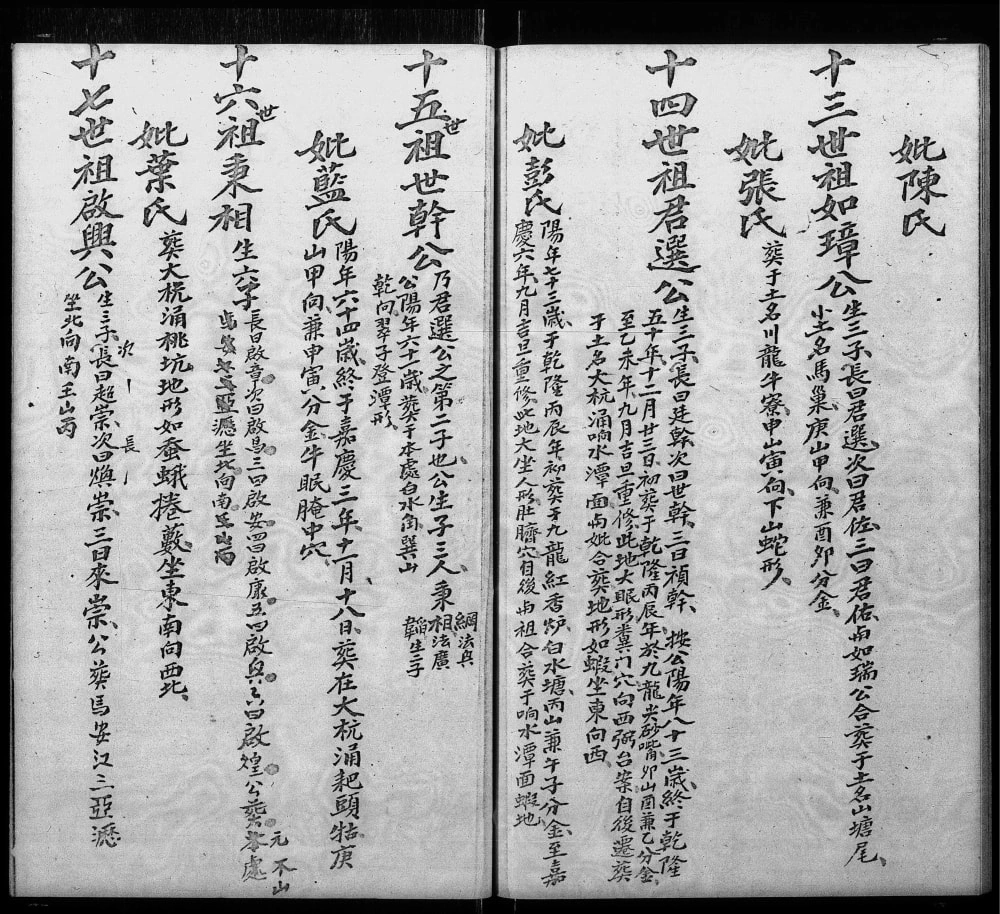 妣陳氏
十三世祖如璋公生三子長曰君選次曰君佐三曰君佑与如瑞公合葬于土名山塘尾
小土名馬巢庚山甲向兼酉夘分金
妣張氏葬于土名川龍牛寮申山寅向下山蛇形
十四世祖君選公生三子長曰廷幹次曰世幹三曰禎幹按公陽年八十三歲終于乾隆
五十年十二月廿三日初葬于乾隆丙辰年於九龍尖砂嘴夘山酉兼乙分金
至乙未年九月吉旦重修此地大眠形糞门穴向西弼台案自後遷葬
于土名大杭涌响水潭面与妣合葬地形如蝦坐東向西
妣彭氏陽年七十三歲于乾隆丙辰年初葬于九龍紅香炉白水塘丙山兼午子分金至嘉
慶六年九月吉旦重修此地大坐人形肚臍穴自後与祖合葬于响水潭面蝦地
十五世祖世幹公乃君選公之第二子也公生子三人秉綱法兵相法廣韜生三子
公陽年六十歲葬于本處白水角巽山
乾向翠子登潭形
妣藍氏陽年六十四歲終于嘉慶三年十一月十八日葬在大杭涌耙頭牯庚
山甲向兼申寅分金牛眠腌中穴
十六世祖秉相生六子長曰啟章次曰啟昌三曰啟安四曰啟康五曰啟興六曰啟煌公葬本處
坐北向南壬山丙
元不山
妣葉氏葬大杭涌桃坑地形如蚕蛾捲藪坐東南向西北
十七世祖啟興公生三子長曰超崇次曰煥崇三曰來崇公葬馬安江三亞瀝
次長
坐北向南壬山丙